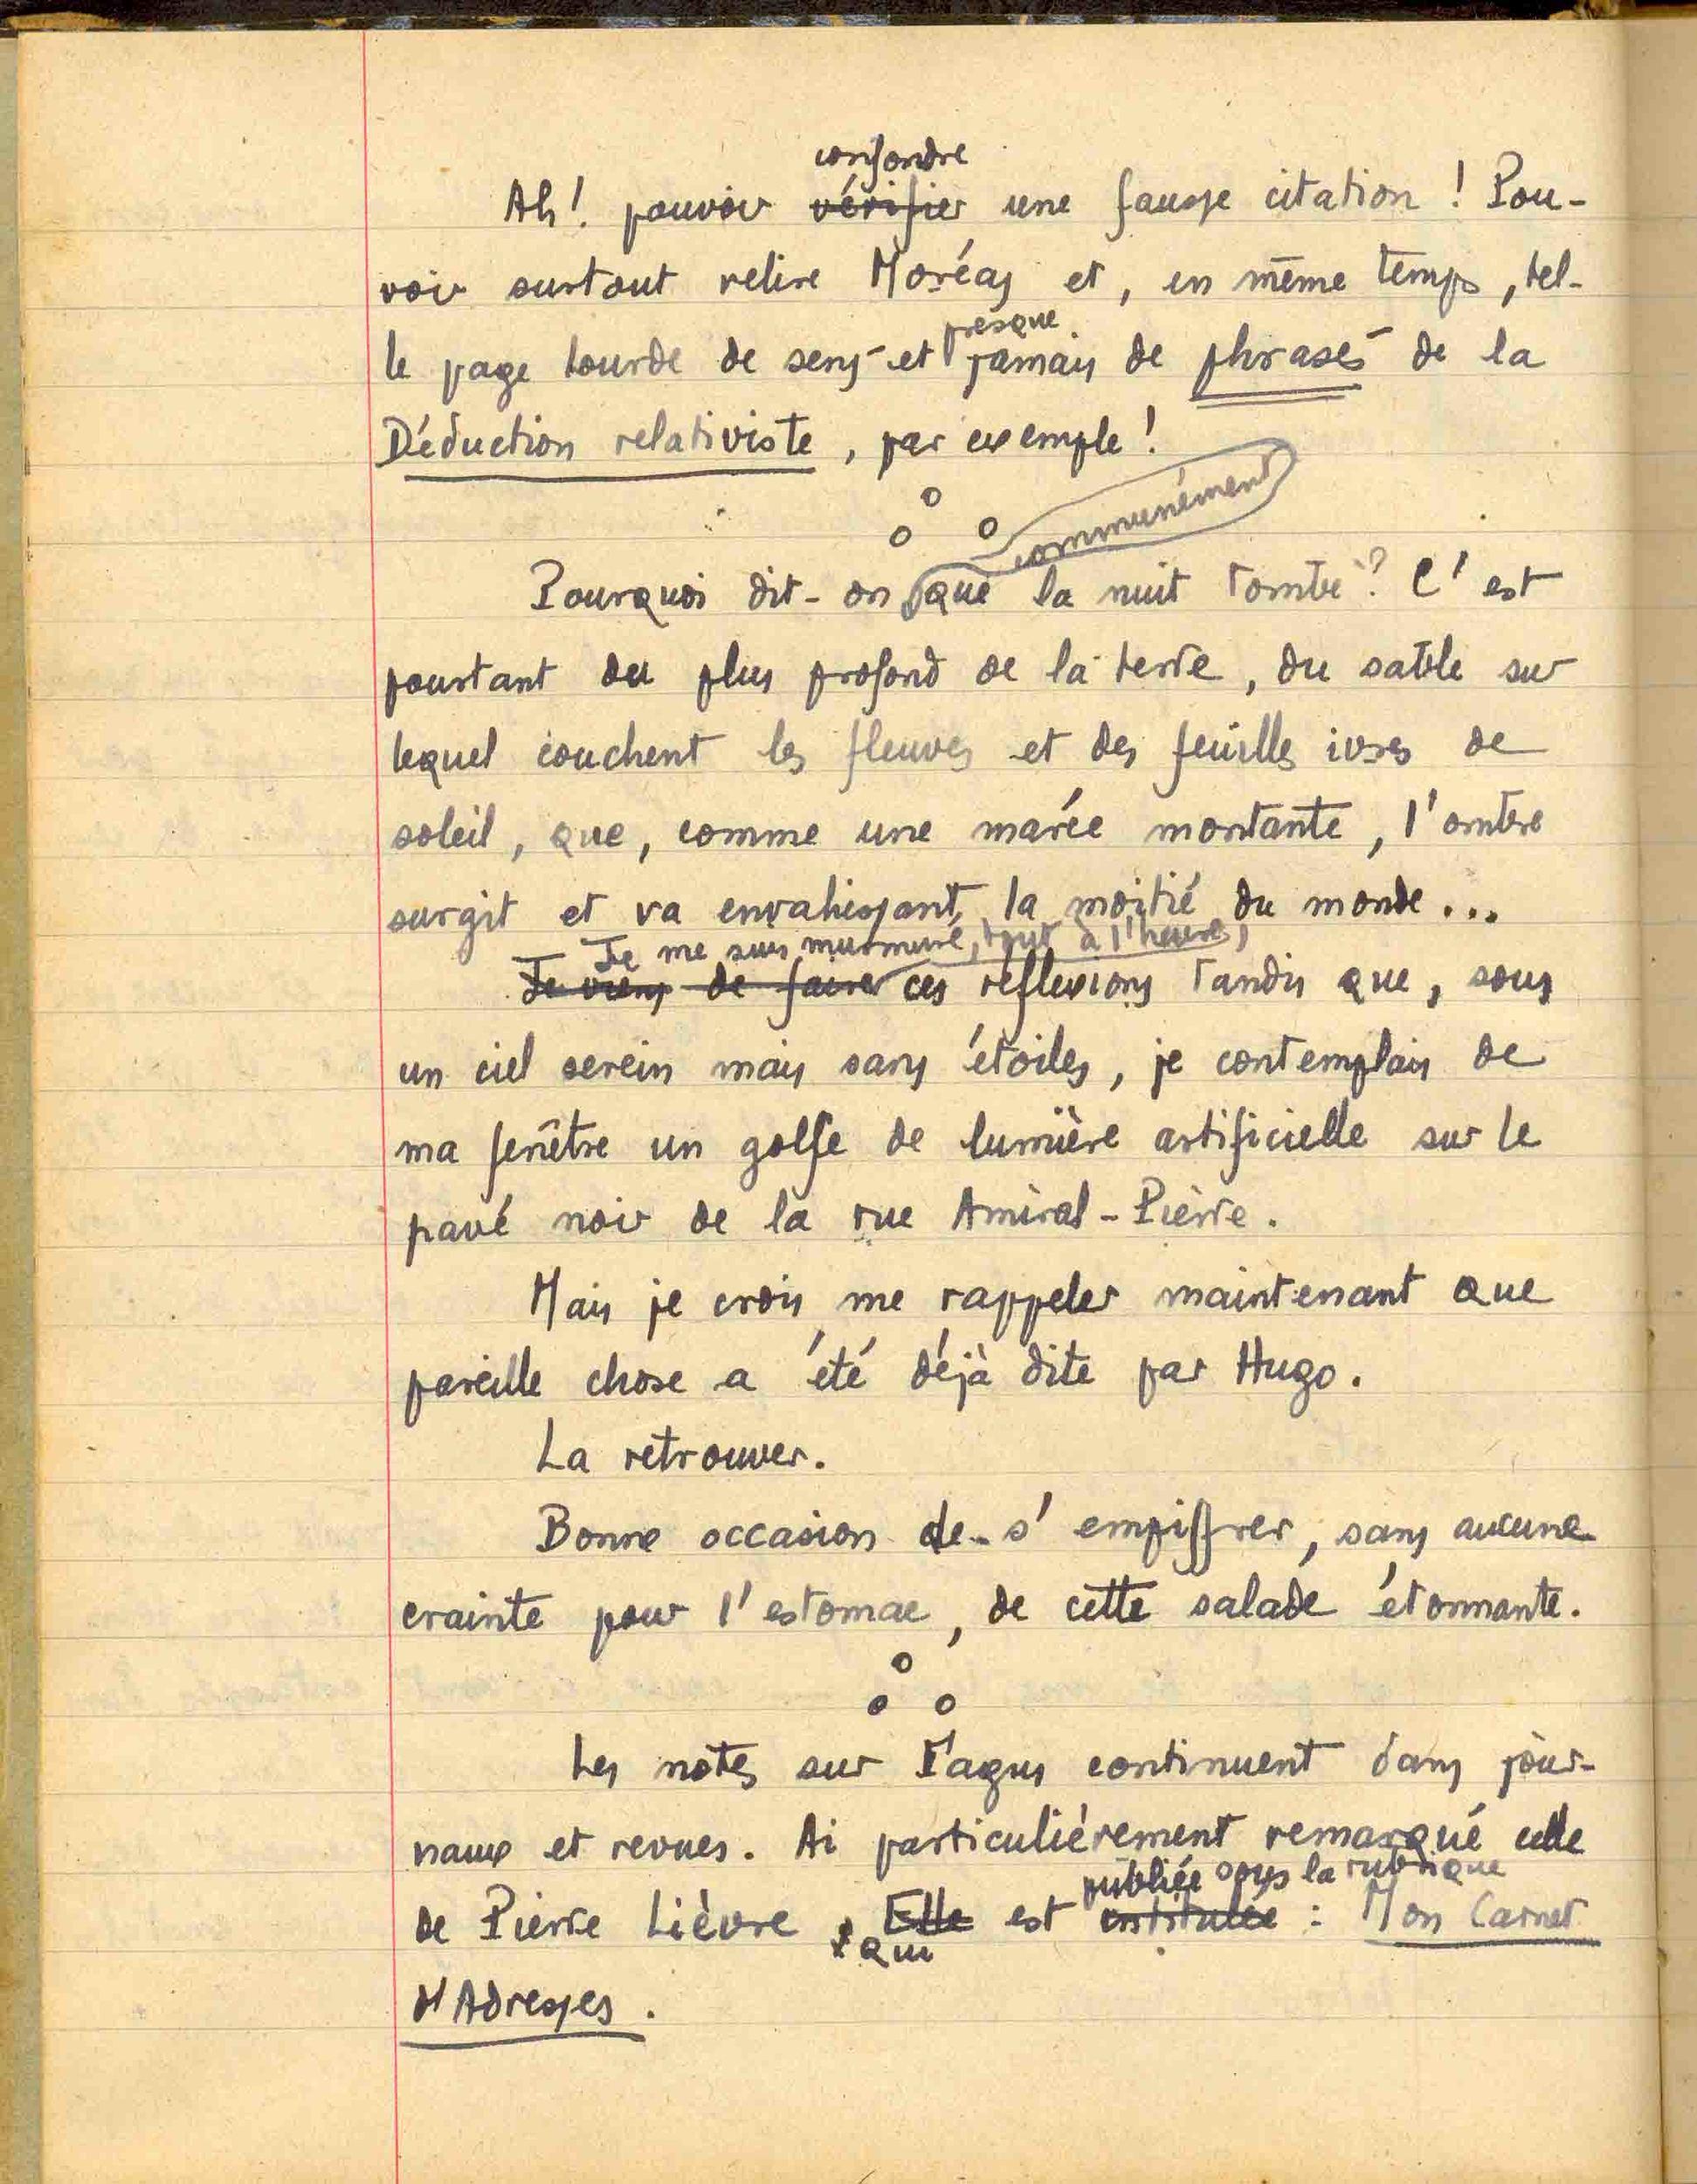 confondre
Ah! pouvoir vérifier une fausse citation ! Pou-
voir surtout relire Moréas et, en même temps, tel-
presque
le page lourde de sens - et jamais de phrases - de la
Déduction relativiste, par exemple !
communément
Pourquoi dit-on que la nuit tombe ? C'est
pourtant du plus profond de la terre, du sable sur
lequel couchent les fleuves et des feuilles ivres de
soleil, que, comme une marée montante, l'ombre
surgit et va envahissant la moitié du monde...
Je me suis murmuré, tout à l'heure,
Je viens de faire ces réflexions tandis que, sous
un ciel serein mais sans étoiles, je contemplais de
ma fenêtre un golfe de lumière artificielle sur le
pavé noir de la rue Amiral-Pierre.
Mais je crois me rappeler maintenant que
pareille chose a été déjà dite par Hugo.
La retrouver.
Bonne occasion de s'empiffrer, sans aucune
crainte pour l'estomac, de cette salade étonnante.
Les notes sur Fagus continuent dans jour-
naux et revues. Ai particulièrement remarqué celle
publiée sous la rubrique
de Pierre Lièvre, Elle est intitulée : Mon Carnet
qui
d'Adresses.